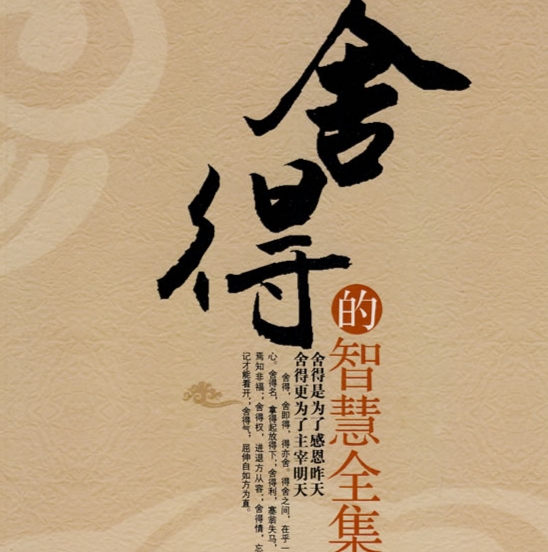 舍得
的智慧全集
舍得是为了感恩昨天
舍得更为了主宰明天
舍得，舍即得，得亦舍。得舍之间，在乎一
心。舍得名，拿得起放得下；舍得利，塞翁失马，
焉知非福；舍得权，进退方从容；舍得情，忘
记才能看开；舍得气，屈伸自如方为直。